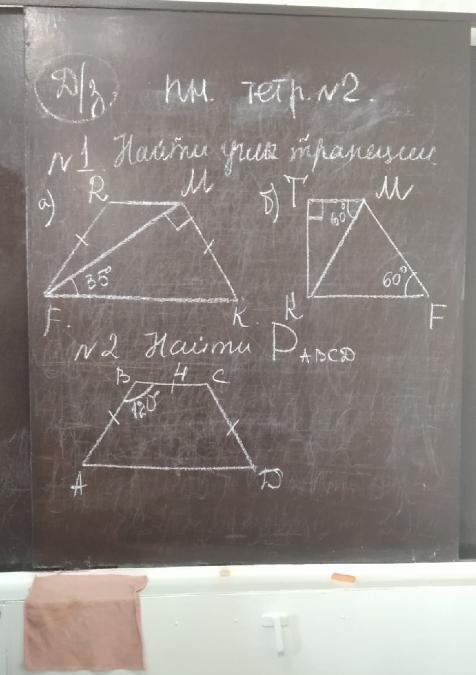 Д/з. пн. тетр. №2.
№1 Найти углы трапеции
а) R M б) T M
60°
35° 60°
F. K K F
№2 Найти P ABCD
B 4 C
120°
A D